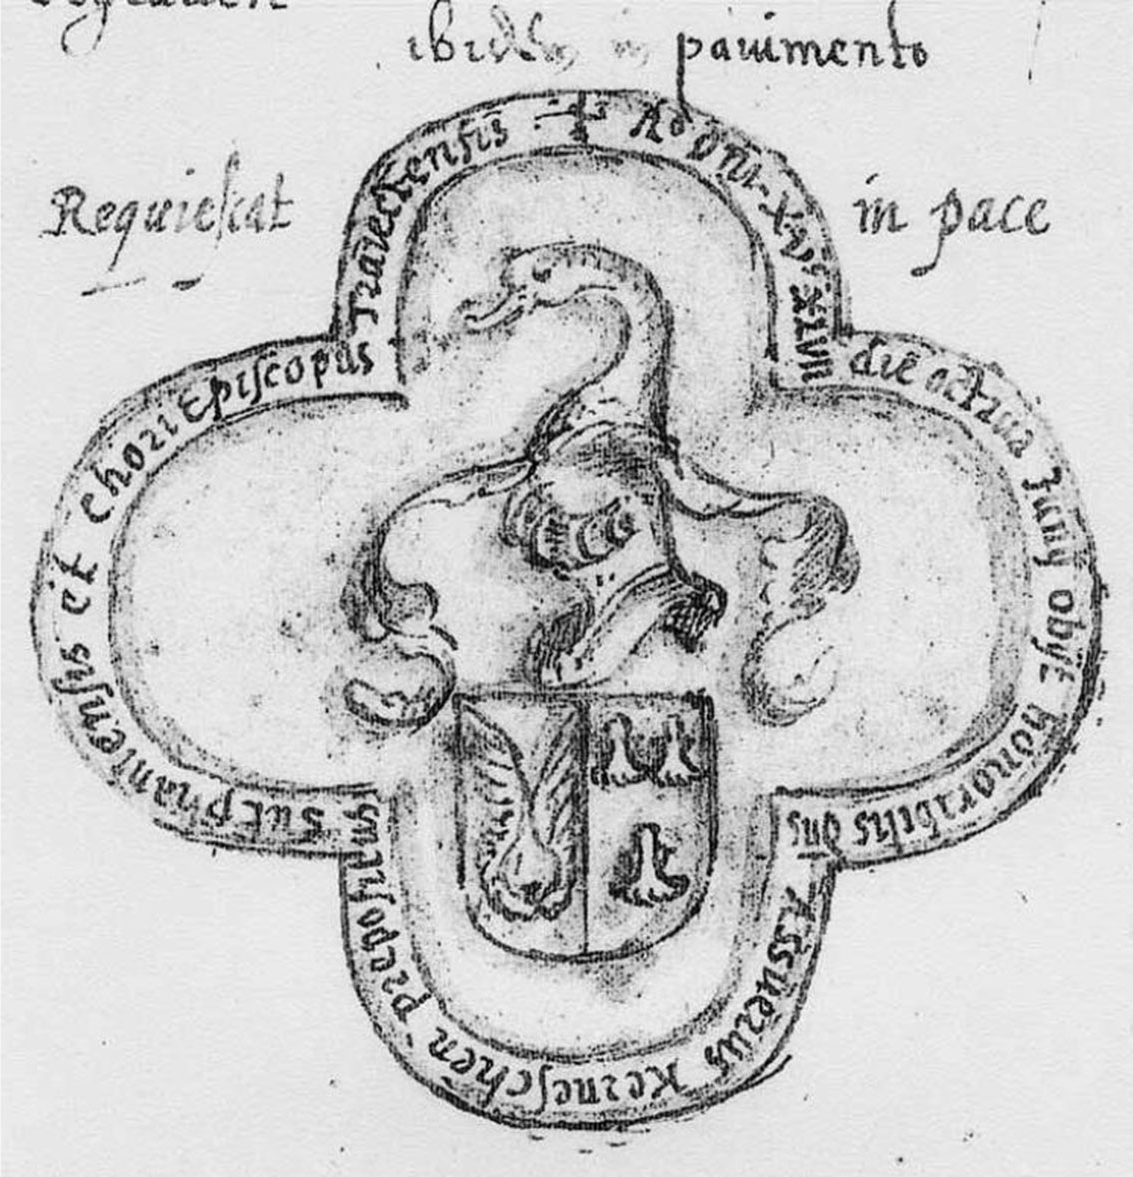 ibidem in pavimento
Requiescat in pace
Aº Dñi XVᶜ XLVII
die octava Junij obijt honorabilis dñs
Assuerus Kerneschen prepositus
Sutphaniensis et chori Episcopus
Traiectensis